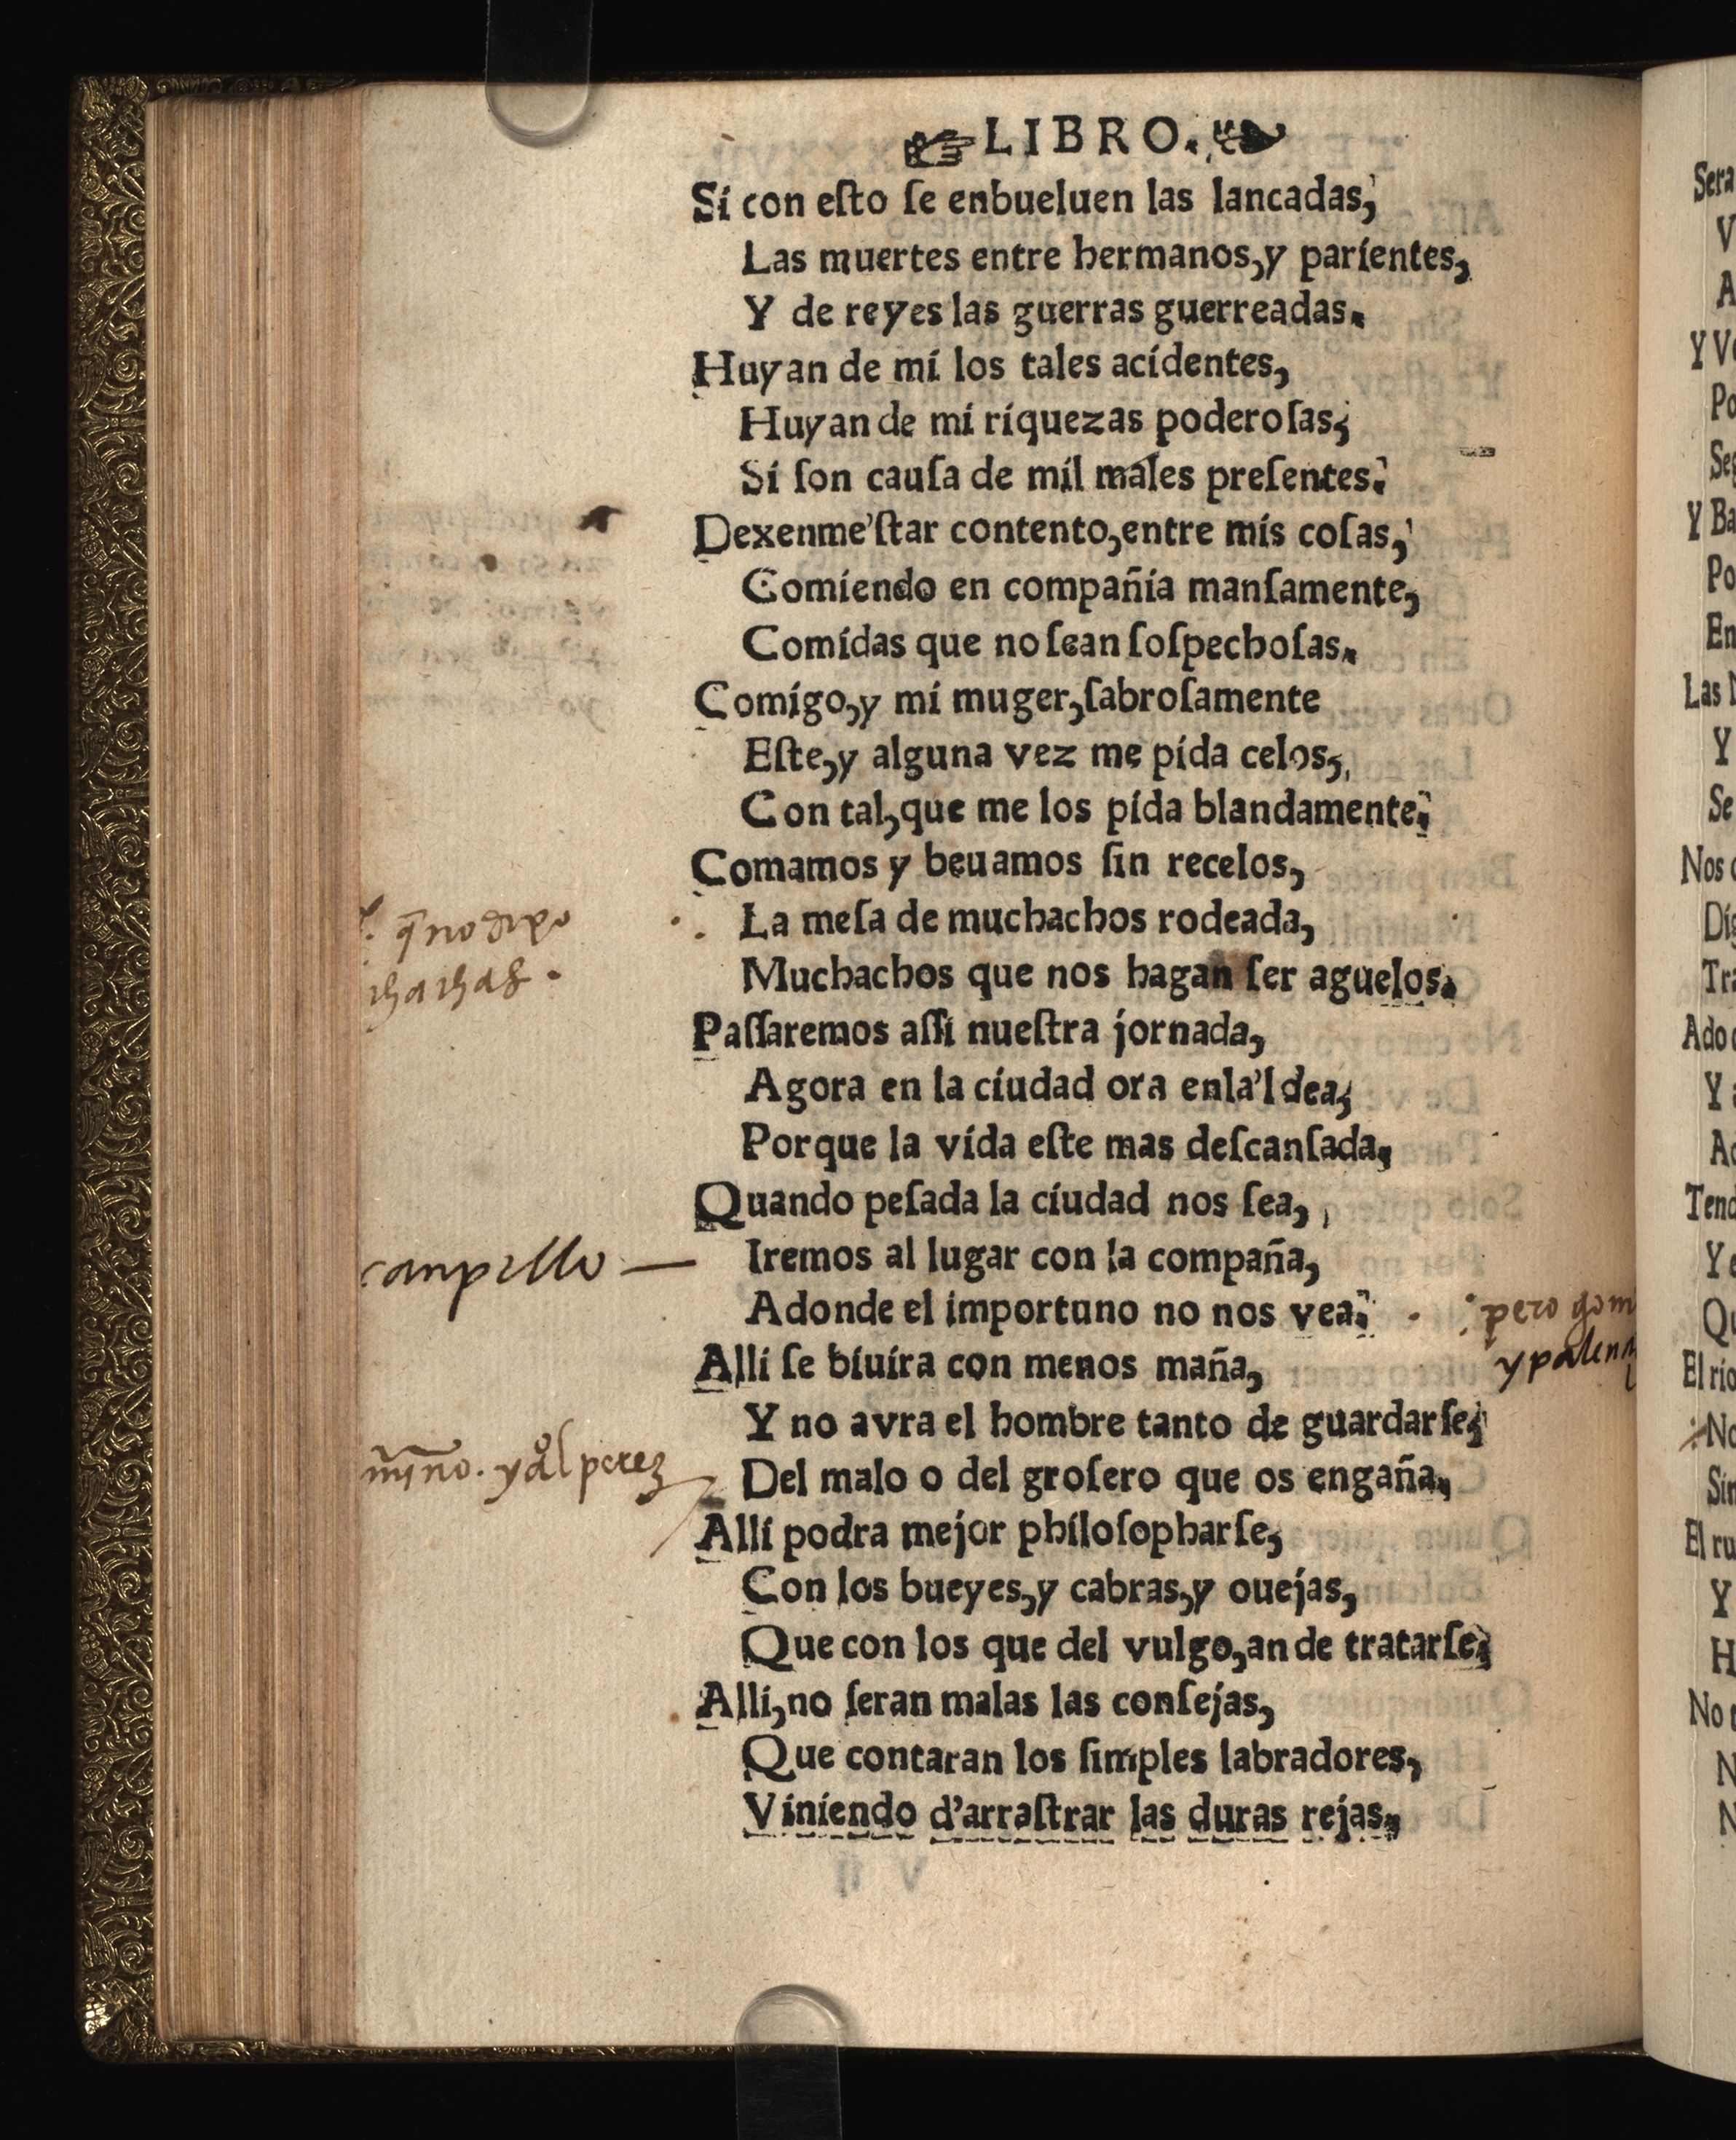 LIBRO.
Si con eſto ſe enbueluen las lancadas,
Las muertes entre hermanos, y parientes,
Y de reyes las guerras guerreadas.
Huyan de mi los tales acidentes,
Huyan de mi riquezas poderoſas,
Si ſon cauſa de mil males preſentes.
Dexenme'ſtar contento, entre mis coſas,
Comiendo en compañia manſamente,
Comidas que no ſean ſoſpechoſas.
Comigo, y mi muger, ſabroſamente
Eſte, y alguna vez me pida celos,
Con tal, que me los pida blandamente.
Comamos y beuamos ſin recelos,
La meſa de muchachos rodeada,
q̄ no digo
Muchachos que nos hagan ſer aguelos.
Paſſaremos aſſi nueſtra jornada,
Agora en la ciudad ora en la'ldea,
Porque la vida eſte mas deſcanſada,
Quando peſada la ciudad nos ſea,
canpillo — Iremos al lugar con la compaña,
Adonde el importuno no nos vea. pero gom
y palen
Alli ſe biuira con menos maña,
Y no avra el hombre tanto de guardarſe,
perez
Del malo o del groſero que os engaña,
Alli podra mejor philoſopharſe,
Con los bueyes, y cabras, y ouejas,
Que con los que del vulgo, an de tratarſe.
Alli, no ſeran malas las conſejas,
Que contaran los ſimples labradores,
Viniendo d'arraſtrar las duras rejas,
Sera
V
A
Y V
Po
Seg
Y Ba
Po
En
Las
Y
Se
Nos
Dig
Tra
Ado
Y
Ad
Tend
Y
Qu
El rio
No
Sin
El ru
Y
H
No
N
N